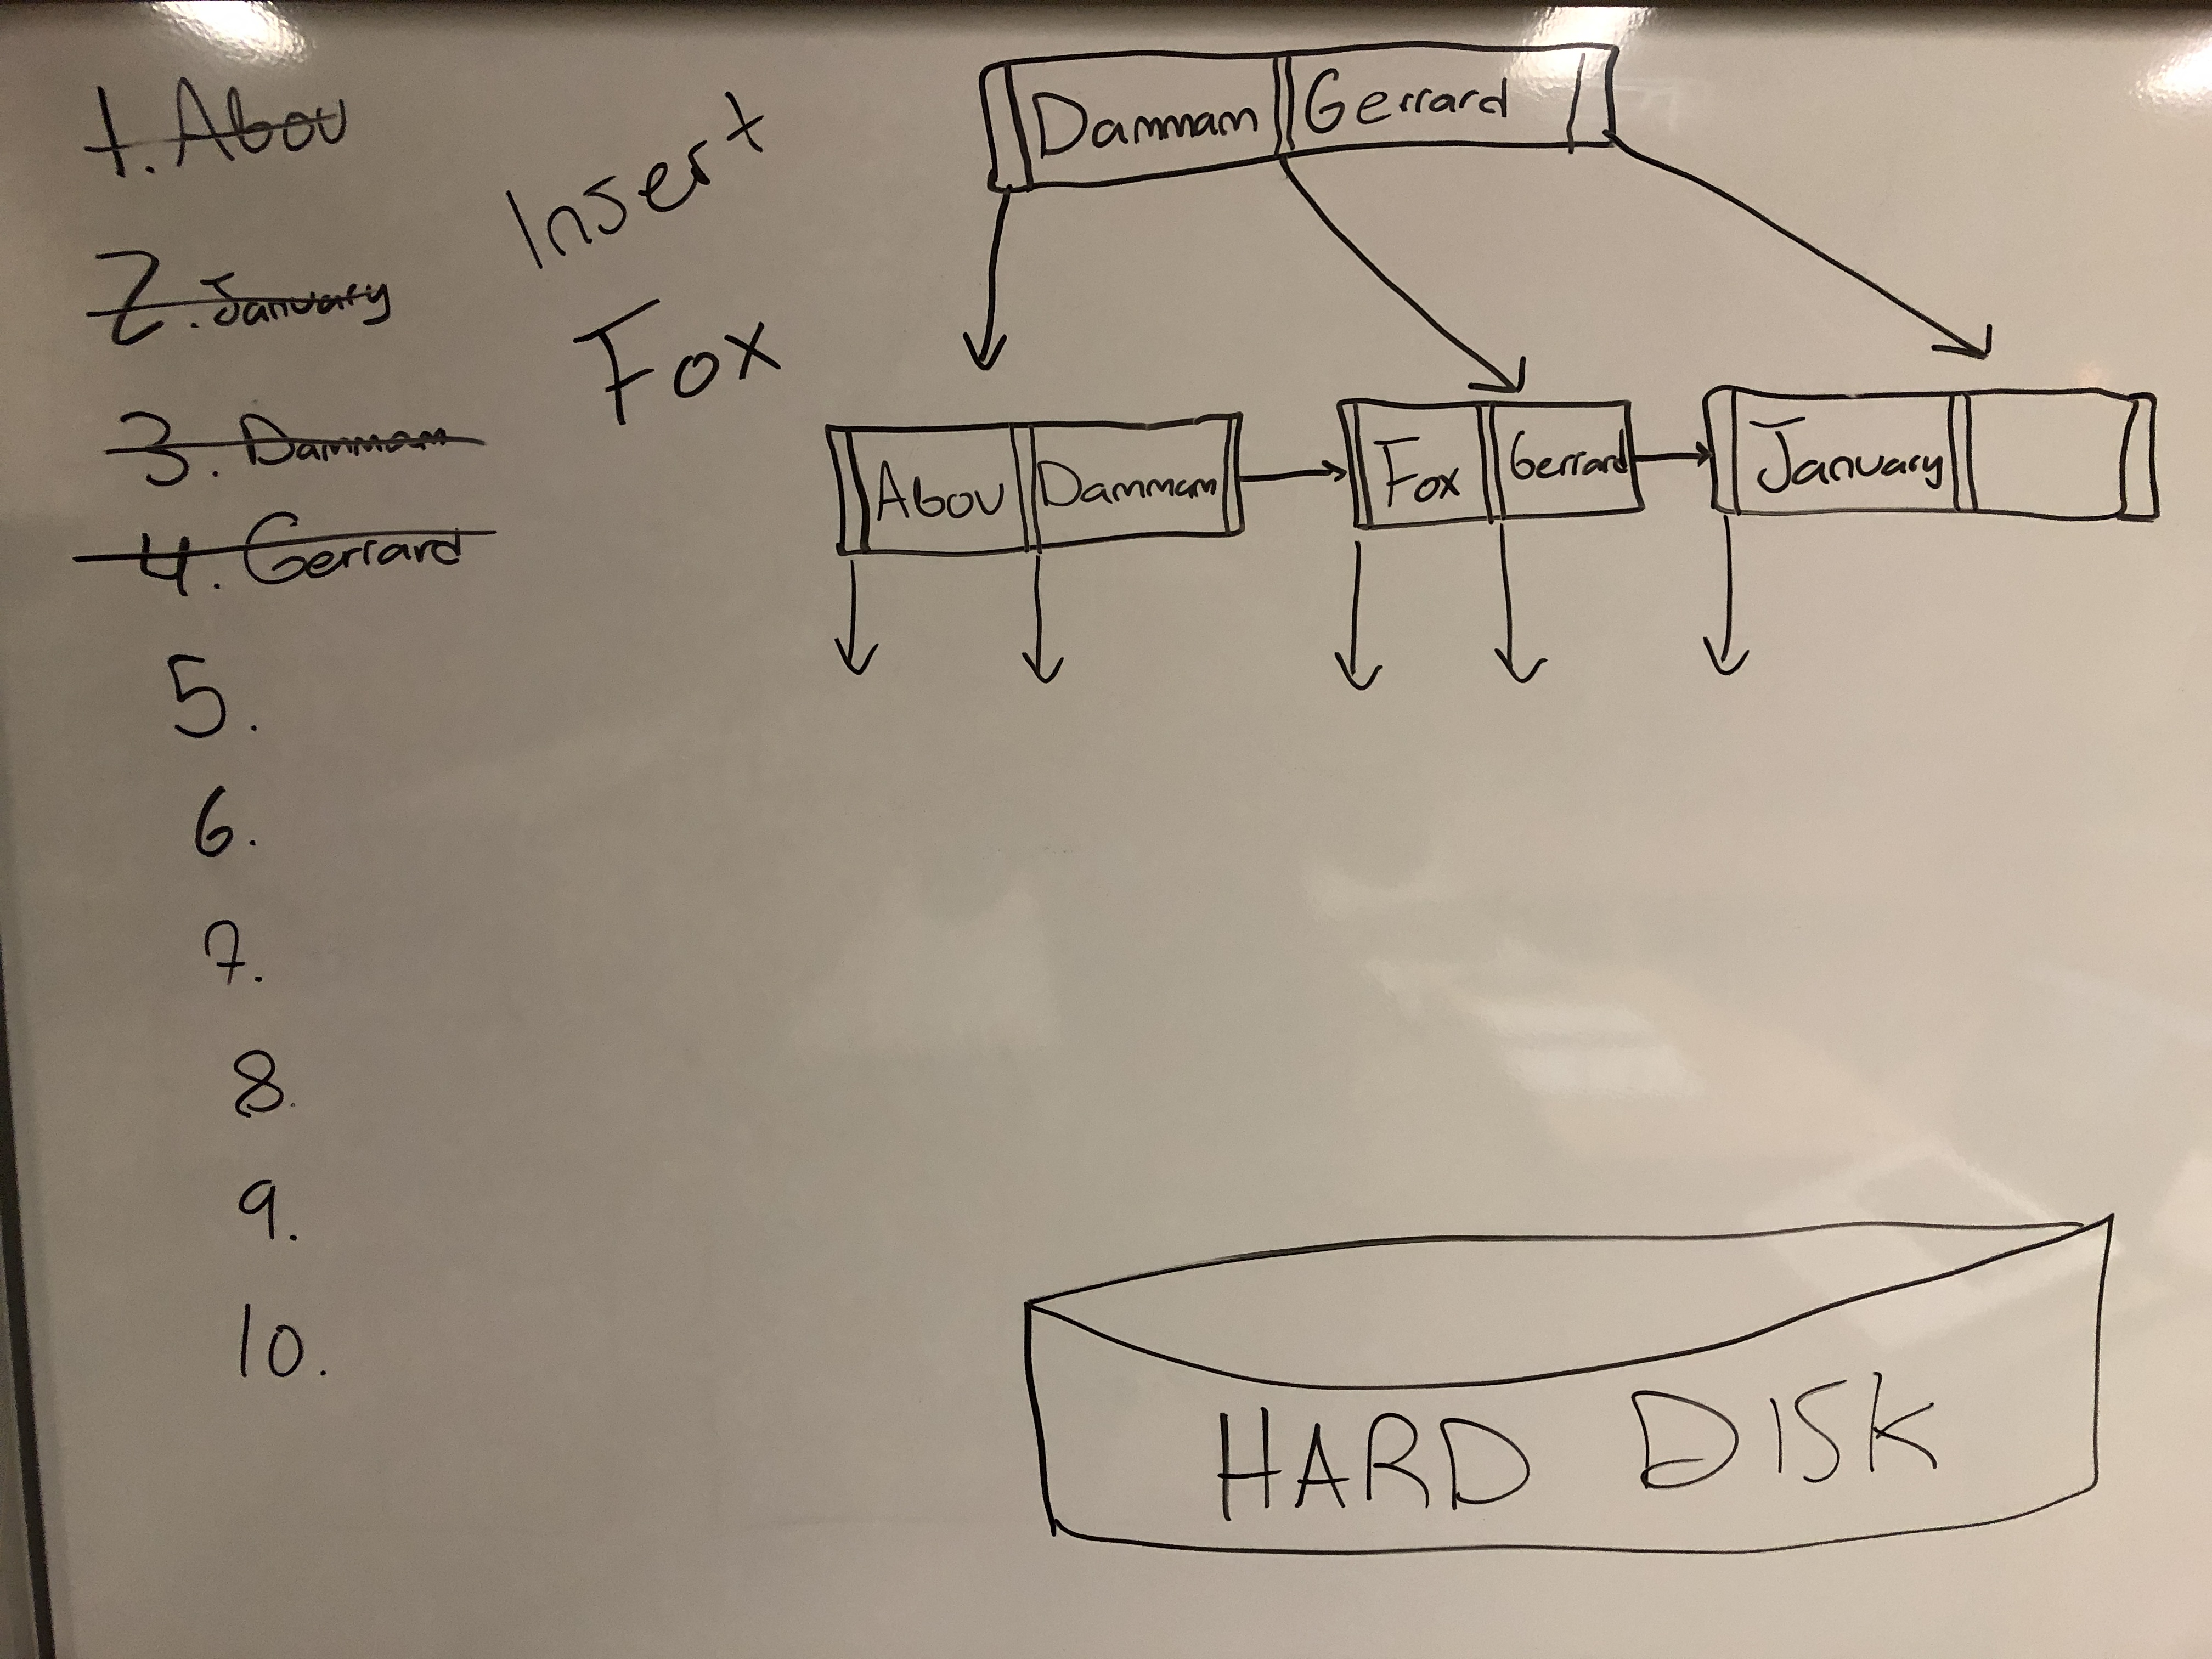 1. Abou
2. January
3. Dammam
4. Gerrard
5.
6.
7.
8.
9.
10.
Insert
Fox
Dammam Gerrard
Abou Dammam Fox Gerrard January
HARD DISK